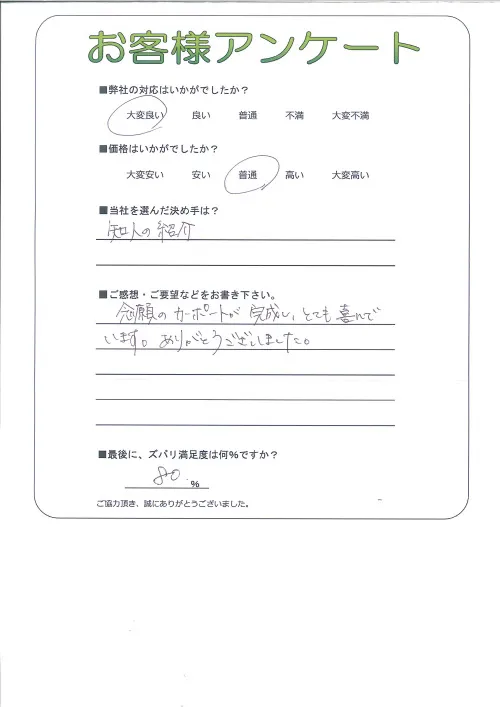 お客様アンケート
■弊社の対応はいかがでしたか？
大変良い 良い 普通 不満 大変不満
■価格はいかがでしたか？
大変安い 安い 普通 高い 大変高い
■当社を選んだ決め手は？
知人の紹介
■ご感想・ご要望などをお書き下さい。
念願のカーポートが完成し、とても喜んで
います。ありがとうございました。
■最後に、ズバリ満足度は何％ですか？
80 %
ご協力頂き、誠にありがとうございました。